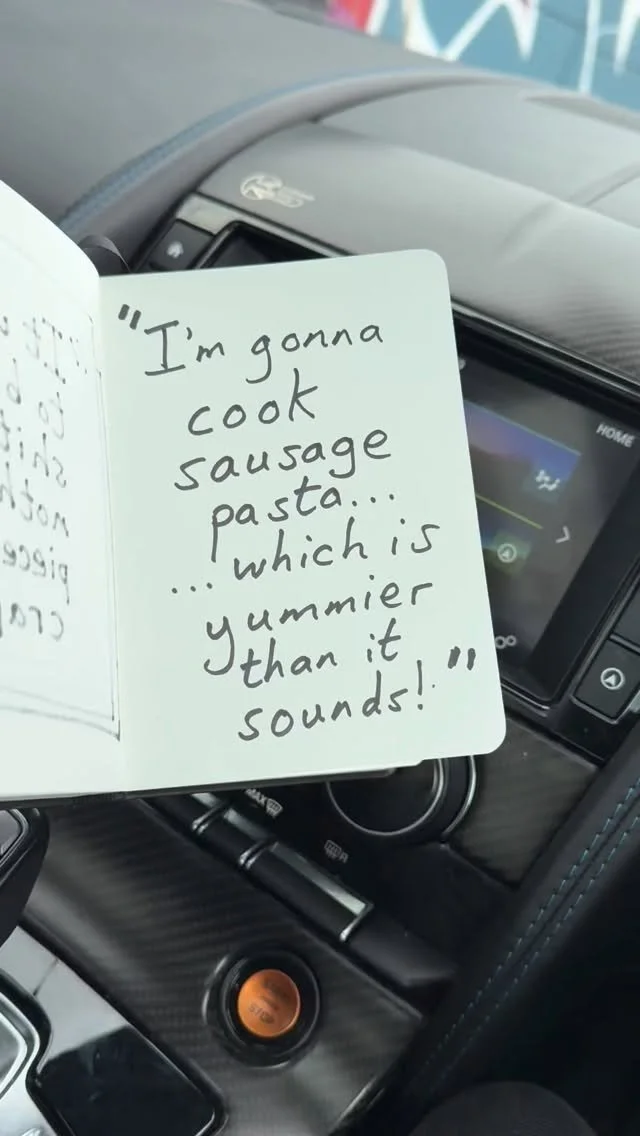 "I'm gonna
cook
sausage
pasta...
...which is
yummier
than it
sounds!."
HOME
MAX
STOP